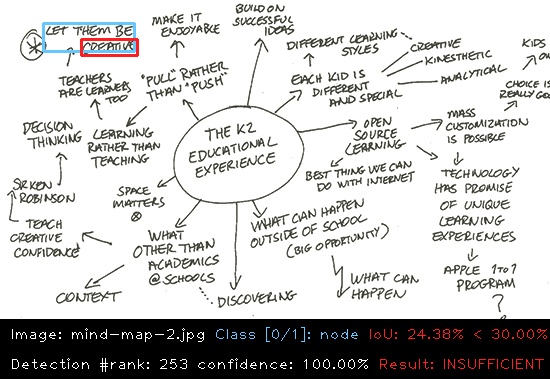 LET THEM BE
CREATIVE
MAKE IT
ENJOYABLE
BUILD ON
SUCCESSFUL
IDEAS
DIFFERENT LEARNING
STYLES
CREATIVE
KINESTHETIC
ANALYTICAL
KIDS
TEACHERS
ARE LEARNERS
TOO
"PULL" RATHER
THAN "PUSH"
EACH KID IS
DIFFERENT
AND SPECIAL
CHOICE IS
DECISION
THINKING
LEARNING
RATHER THAN
TEACHING
THE K2
EDUCATIONAL
EXPERIENCE
OPEN
SOURCE
LEARNING
MASS
CUSTOMIZATION
IS POSSIBLE
BEST THING WE CAN
DO WITH INTERNET
SIR KEN
ROBINSON
SPACE
MATTERS
TECHNOLOGY
HAS PROMISE
OF UNIQUE
LEARNING
EXPERIENCES
TEACH
CREATIVE
CONFIDENCE
WHAT
OTHER THAN
ACADEMICS
@ SCHOOLS
WHAT CAN HAPPEN
OUTSIDE OF SCHOOL
(BIG OPPORTUNITY)
APPLE 1 TO 1
PROGRAM
?
CONTEXT
DISCOVERING
WHAT CAN
HAPPEN
Image: mind-map-2.jpg Class [0/1]: node IoU: 24.38% < 30.00%
Detection #rank: 253 confidence: 100.00% Result: INSUFFICIENT